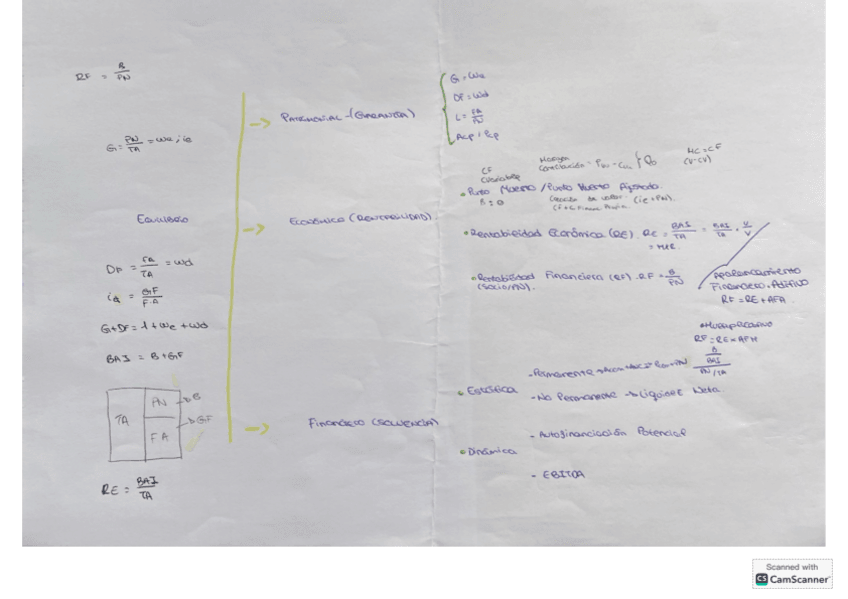 RF = B/PN
G = PN/TA = We, ie
EQUILIBRIO
DF = FA/TA = Wd
id = GF/FA
G+DF = 1 + We + Wd
BAI = B+GF
TA
PN
B
FA
GF
RE = BAI/TA
PATRIMONIAL - (GARANTÍA)
G = We
DF = Wd
L = FA/PN
ECONÓMICO (RENTABILIDAD)
CF
Margen
Contribución
MC = CF
(V-CV)
Punto Muerto / Punto Muerto Ajustado
B = 0
Rentabilidad Económica (RE). RE = BAI/TA = BAI/TA · V/V
Rentabilidad Financiera (RF). RF = B/PN
(Socio/PN).
Apalancamiento
Financiero · Aditivo
RF = RE + AFA
Multiplicativo
RF = RE × AFM
B/BAI / PN/TA
FINANCIERO (SOLVENCIA)
Estática
- No Permanente → Liquidez Neta
Dinámica
- Autofinanciación Potencial
- EBITDA
Scanned with
CS CamScanner